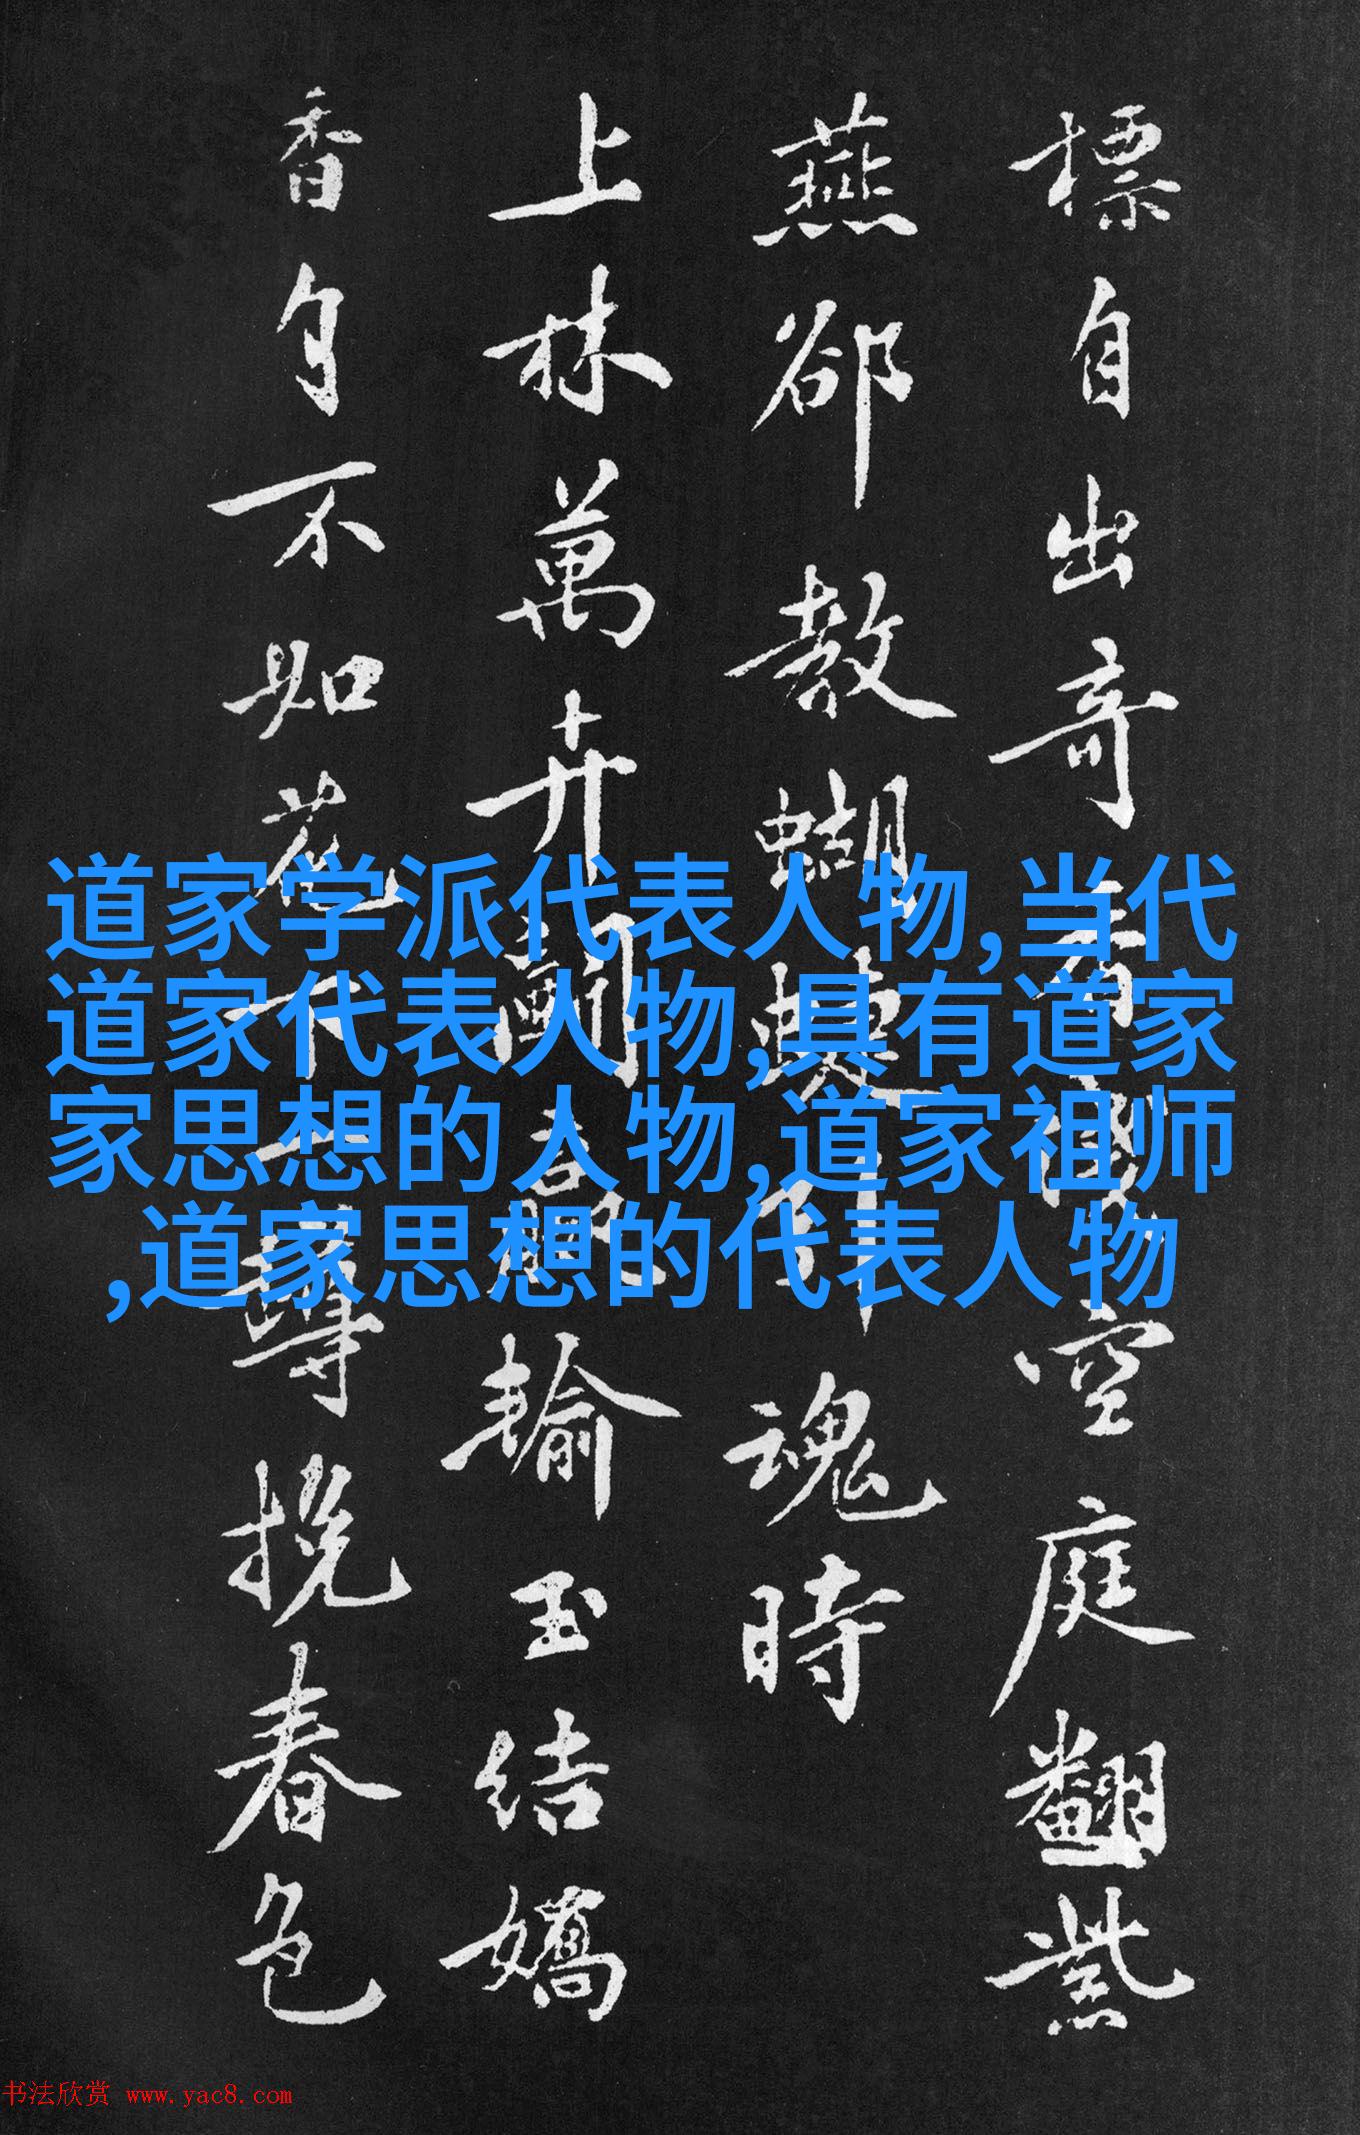 標自出奇空庭翻紫
燕郤教蝴蝶引魂時
上林萬卉鬪輸玉結嬌
香不如花下一尊挽春色
道家学派代表人物,当代
道家代表人物,具有道家
家思想的人物,道家祖师
,道家思想的代表人物
书法欣赏 www.yac8.com